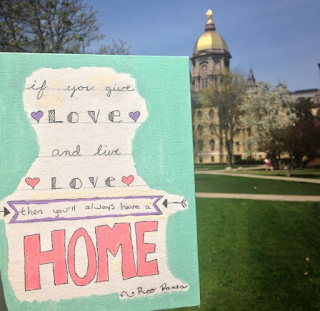 if you give
LOVE
and live
LOVE
then you'll always have a
HOME